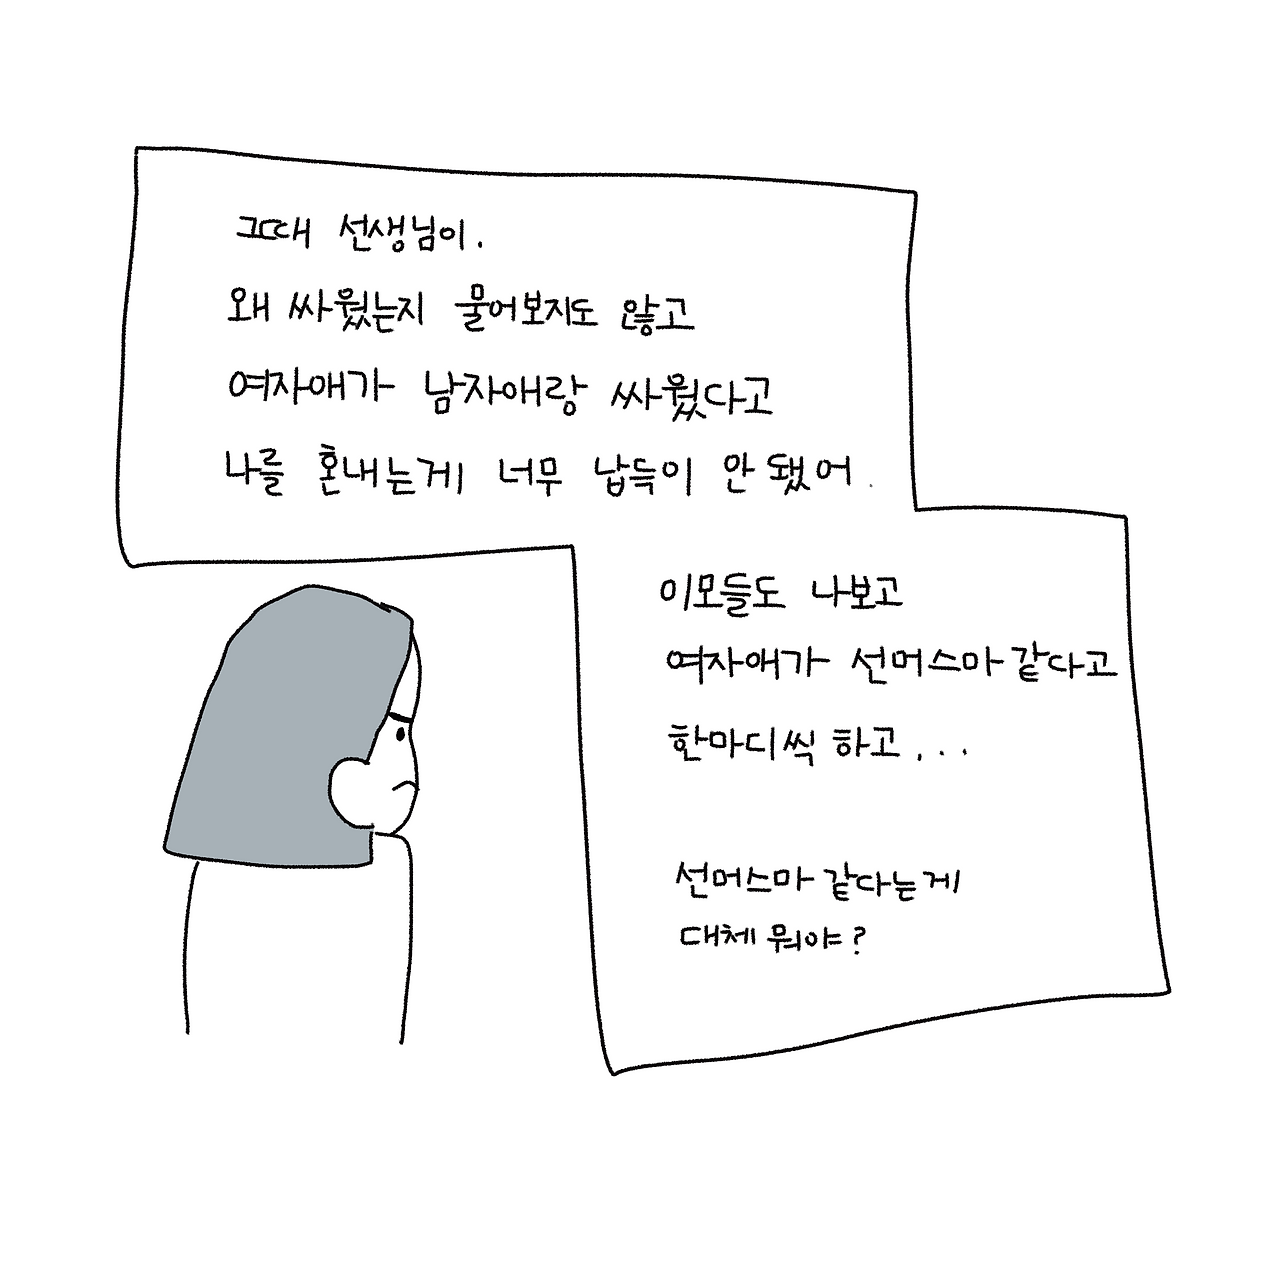 그때 선생님이.
왜 싸웠는지 물어보지도 않고
여자애가 남자애랑 싸웠다고
나를 혼내는게 너무 납득이 안 됐어.
이모들도 나보고
여자애가 선머스마 같다고
한마디씩 하고...
선머스마 같다는게
대체 뭐야?